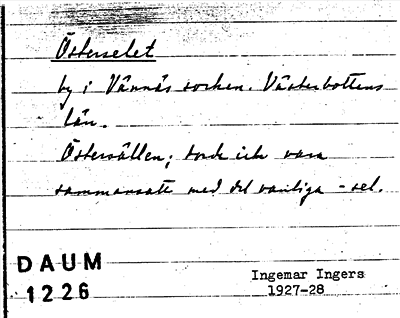 Österselet
by i Vännäs socken. Västerbottens
län.
Östersällen; torde icke vara
sammansatt med det vanliga -sel.
DAUM
1226
Ingemar Ingers
1927-28